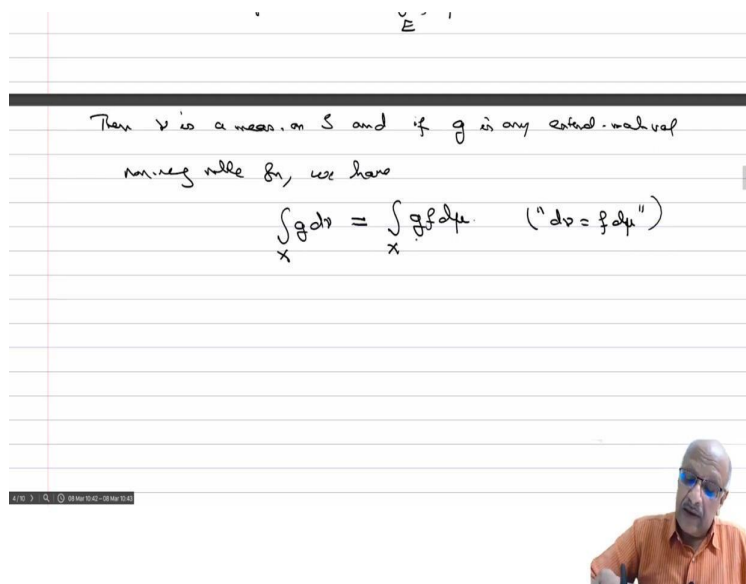 E
Then ν is a meas. on S and if g is any extend. real val
non.neg mble fn, we have
∫_X g dν = ∫_X g f dμ. ("dν = f dμ")
4/10 08 Mar 10:42 – 08 Mar 10:43